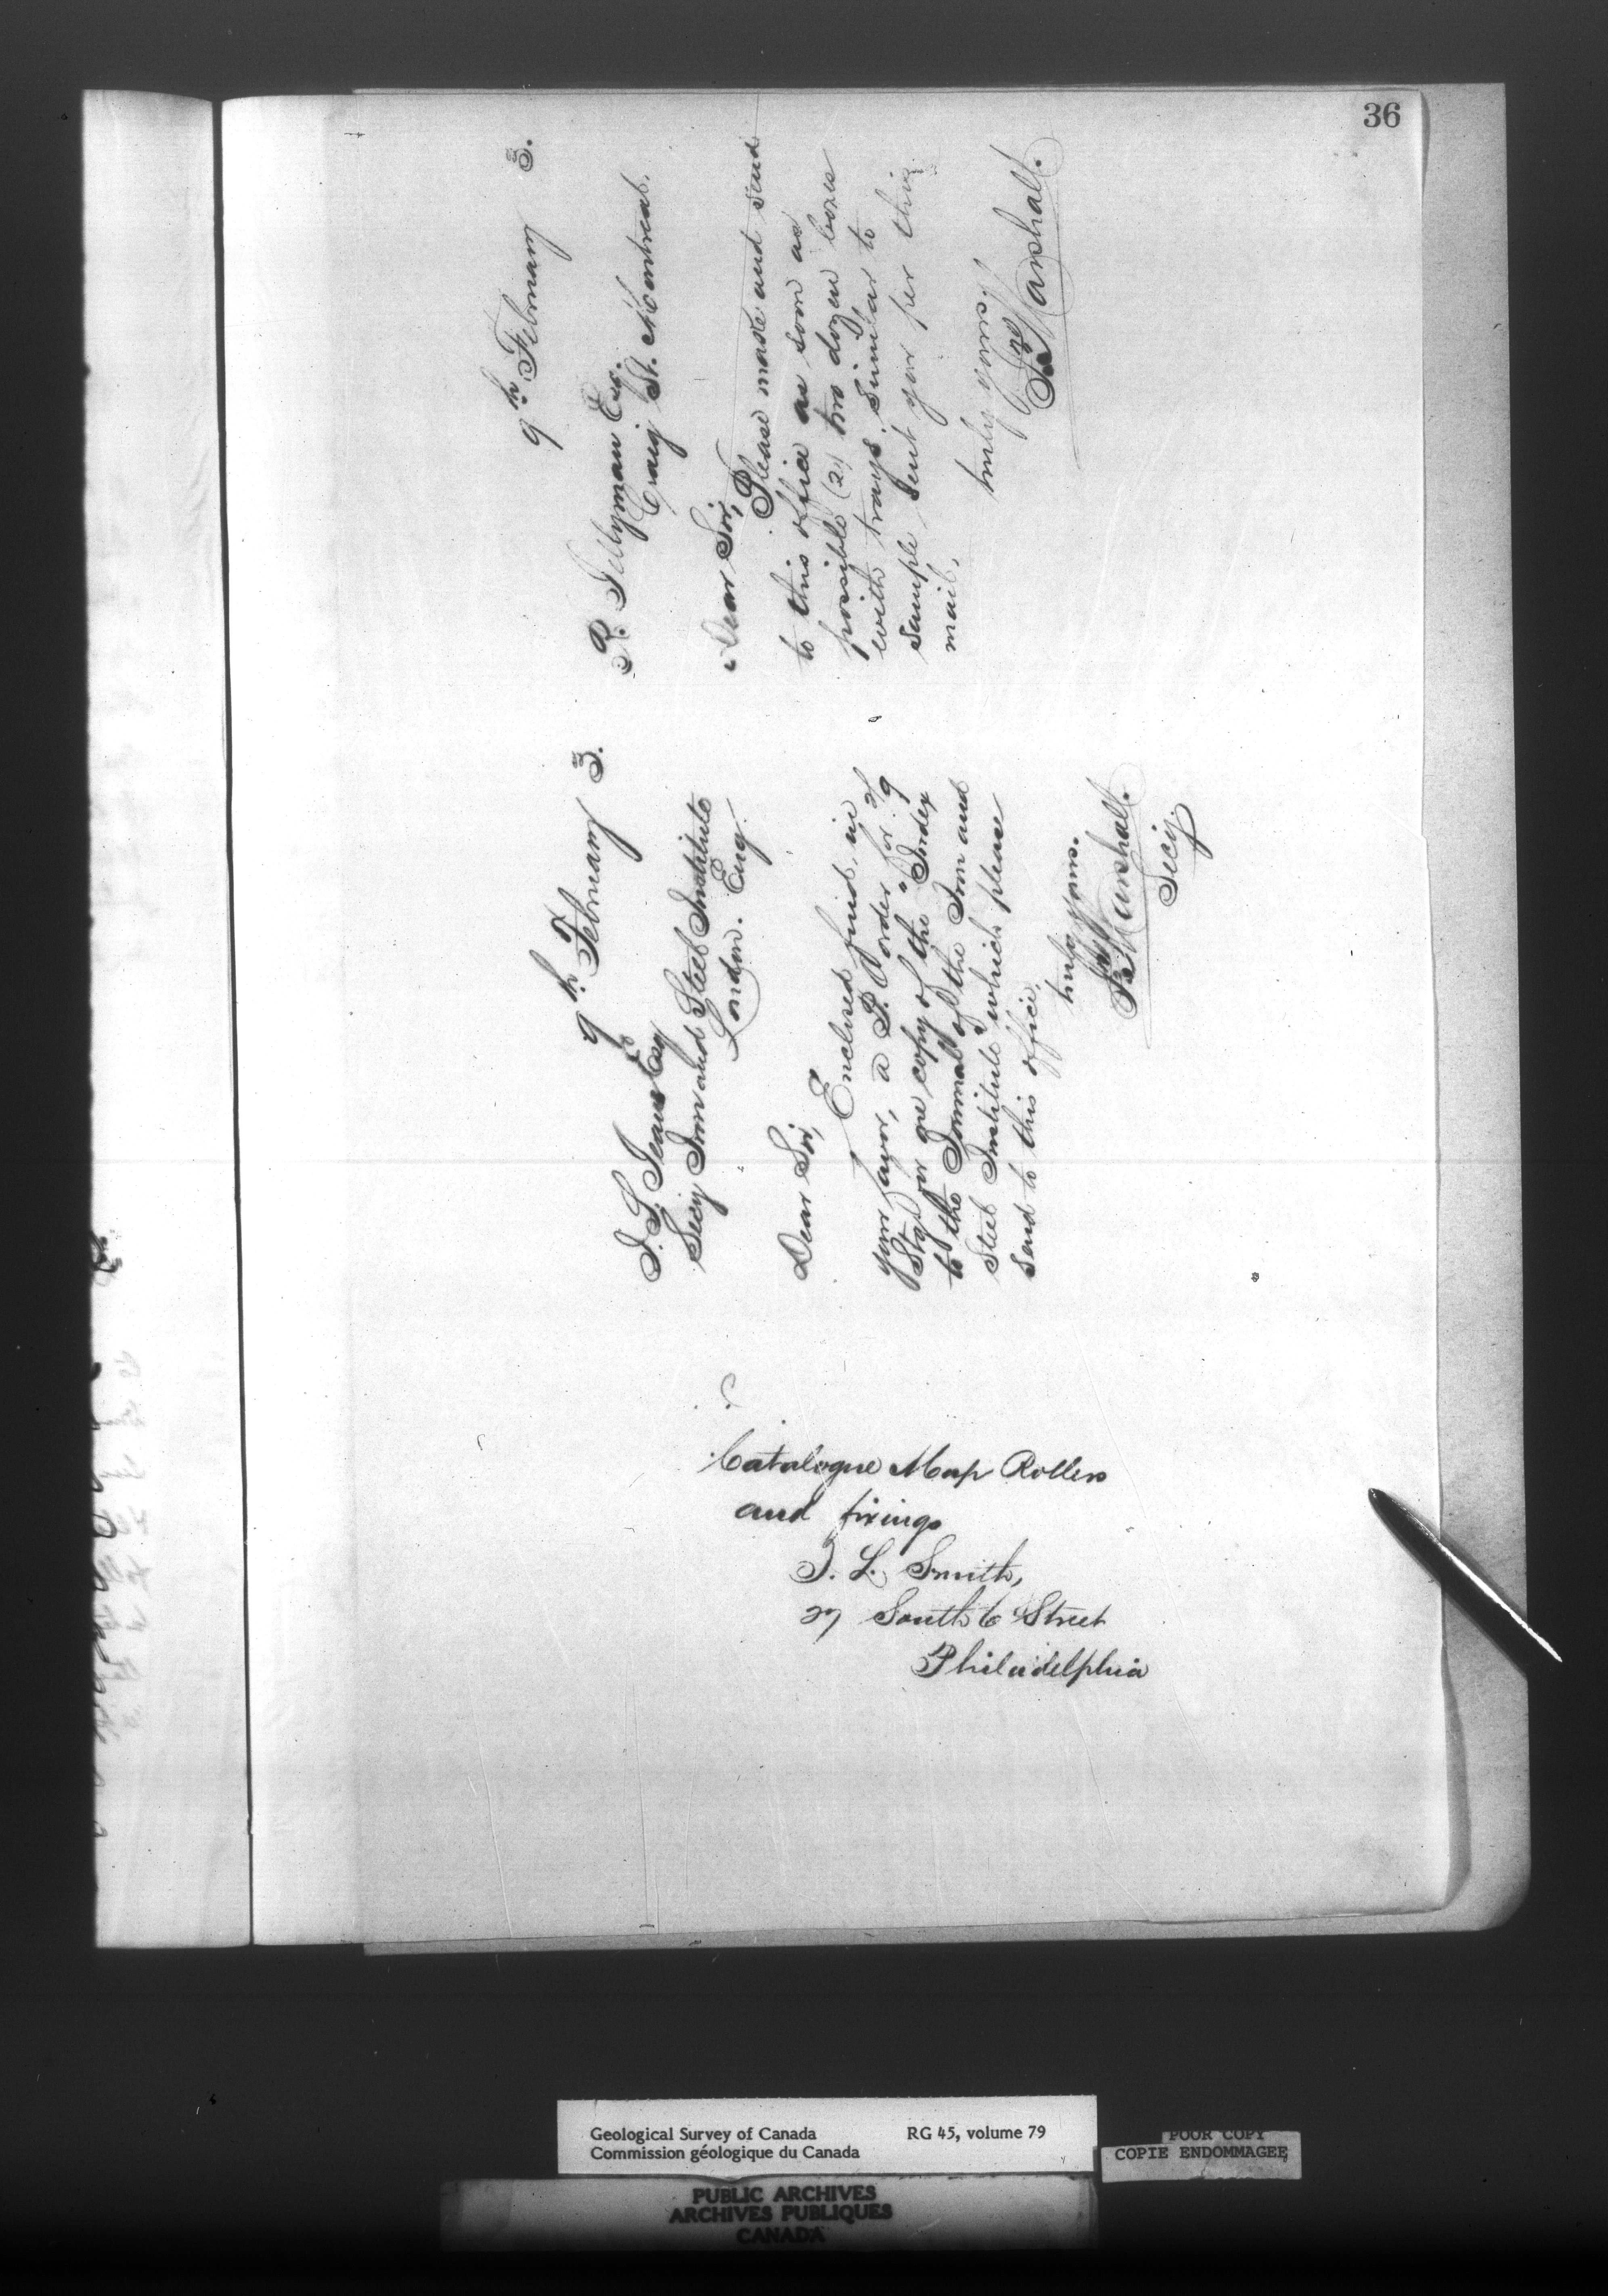 36
9th February 3.
J. S. Jeans Esq
Secy Iron and Steel Institute
London. Eng.
Dear Sir,
Enclosed find, in
your favor, a P. O order for 2/9
Stg for one copy of the "Index
to the Journal of the Iron and
Steel Institute" which please
send to this office.
truly yours.
Marshall.
Secy.
9th February 3.
R. Esq.
Craig St. Montreal.
Dear Sir,
Please make and send
to this office as soon as
possible (2) two dozen boxes
with trays, similar to
sample sent you per this
mail.
truly yours,
Marshall.
Catalogue Map Rollers
and fixings
I. L. Smith,
27 South 6 Street
Philadelphia
Geological Survey of Canada RG 45, volume 79
Commission géologique du Canada
POOR COPY
COPIE ENDOMMAGEE
PUBLIC ARCHIVES
ARCHIVES PUBLIQUES
CANADA